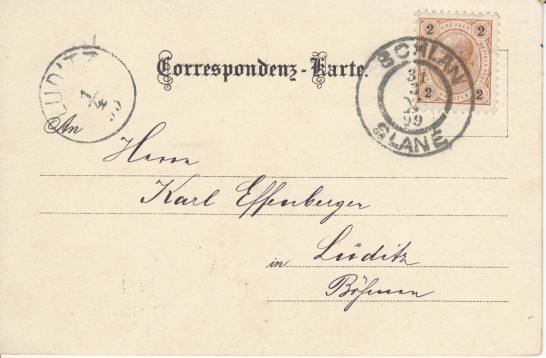 KREUZER
2 2
2 2
SCHLAN
31
3
99
SLANÉ
LUDITZ
1/4
99
Correspondenz-Karte.
An
Herrn
Karl Effenberger
in Lüditz
Böhmen